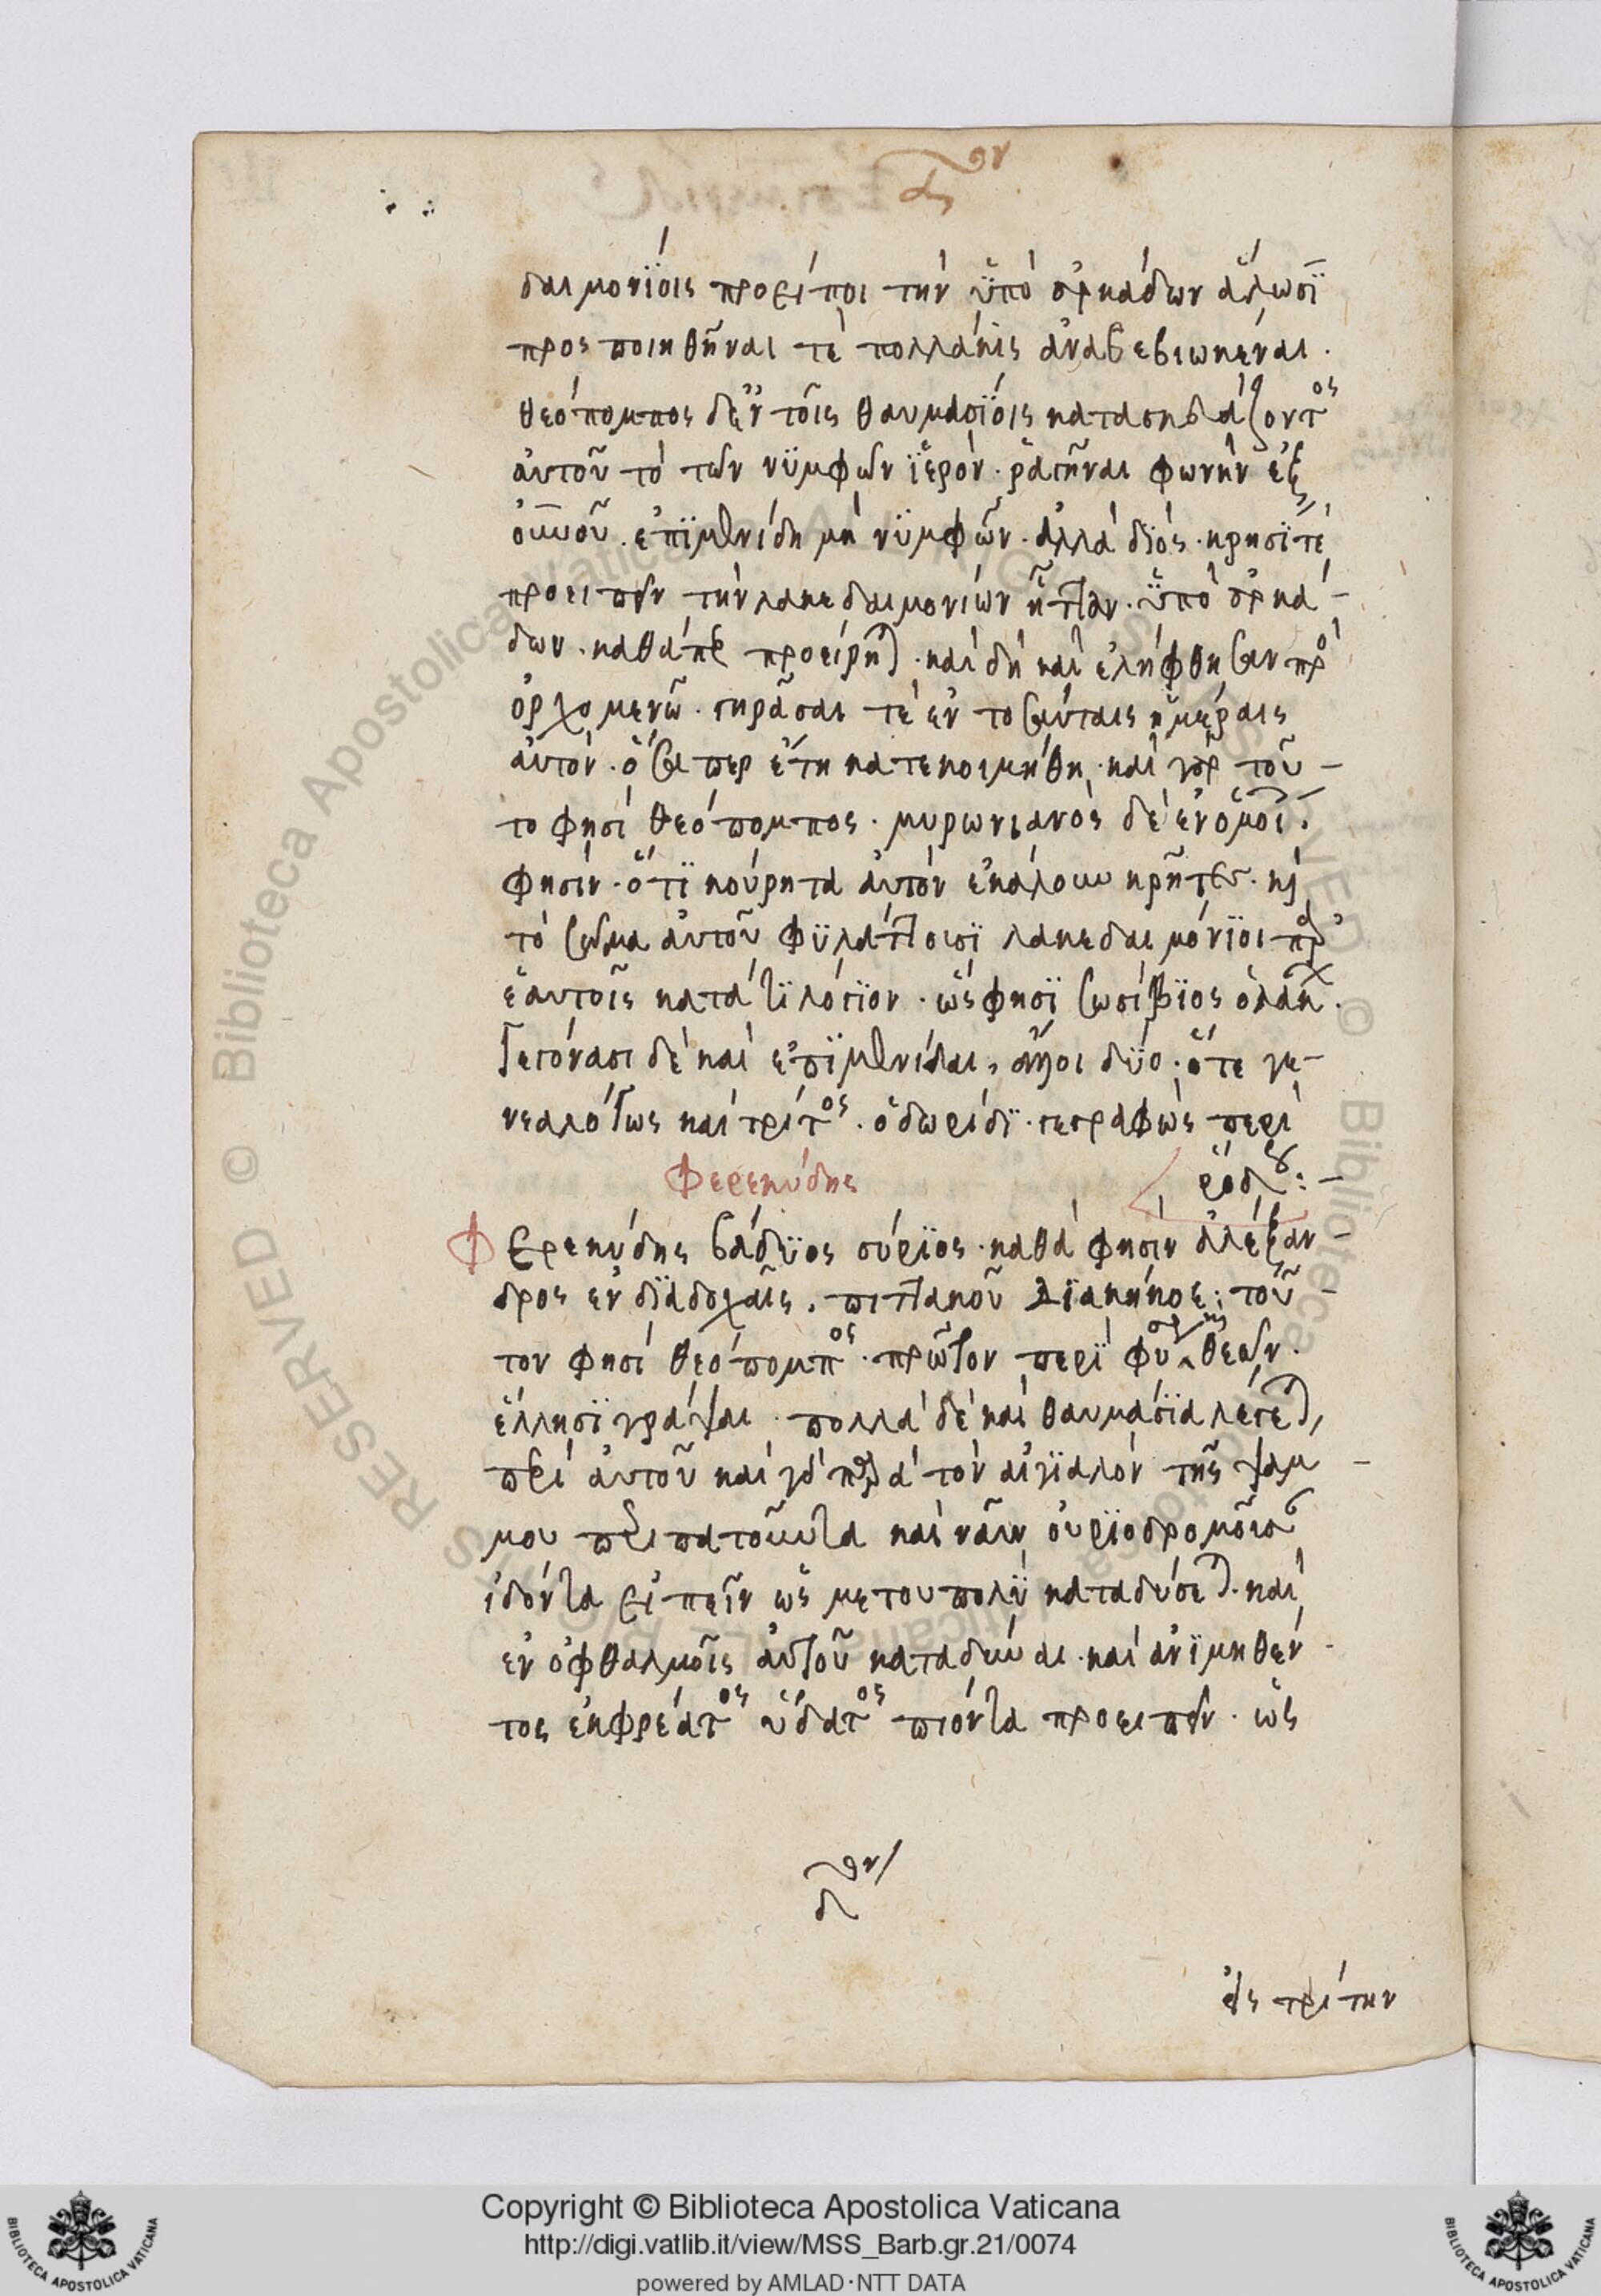 δαιμονΐοις προείποι τὴν ὑπὸ ἀρκάδων ἅλωσϊ
προσποιηθῆναι τὲ πολλάκις ἀναβεβιωκέναι.
θεόπομπος δἐν τοῖς θαυμασΐοις κατασκευάζοντος
ἀυτοῦ τὸ τῶν νϋμφῶν ϊερὸν. ῥαγῆναι φωνὴν ἐξ
οὐνοῦ. ἐπϊμενίδη μὴ νϋμφῶν. ἀλλὰ διὸς. κρησΐ τὲ
προειπεῖν τὴν λακεδαιμονίων ἧτταν. ὑπὸ ἀρκά-
δων. καθάπερ προείρηται. καὶ δὴ καὶ ἐλήφθησαν πρὸ
ὀρχομενῶ. γηρᾶσαι τὲ ἐν τοσαύταις ἡμέραις
ἀυτὸν. ὅσα περ ἔτη κατεκοιμήθη. καὶ γὰρ τοῦ-
το φησὶ θεόπομπος. μυρωνιανὸς δὲ ἐν ὁμοί.
φησὶν. ὅτϊ κούρητα ἀυτὸν ἐκάλουν κρῆτες. καὶ
τὸ σῶμα ἀυτοῦ φϋλάττουσϊ λακεδαιμόνϊοι παρ'
ἑαυτοῖς κατά τϊ λόγϊον. ὥς φησϊ σωσίβϊος ὁ λάκ.
Γεγόνασι δὲ καὶ ἐπϊμενίδαι, ἄλλοι δϋο. ὅτε γε-
νεαλόγως καὶ τρίτος. ὁ δωρίδϊ. γεγραφὼς περὶ
Φερεκύδης
ῥόδου:-
Φερεκύδης βάδϋος σύρϊος. καθά φησιν ἀλέξαν-
δρος ἐν δϊαδοχαῖς. πιττακοῦ διακήκοε: τοῦ-
τον φησὶ θεόπομπος. πρῶτον περὶ φύσεως θεῶν.
ἕλλησϊ γράψαι. πολλὰ δὲ καὶ θαυμάσϊα λέγεται,
περὶ ἀυτοῦ καὶ γὰρ παρὰ τὸν αἰγϊαλὸν τῆς ψάμ-
μου περιπατοῦντα καὶ ναῦν οὐρϊοδρομοῦσαν
ἰδόντα εἰπεῖν ὡς μετουπολὺ καταδύσεται. καὶ
ἐν ὀφθαλμοῖς ἀυτοῦ καταδῦναι. καὶ ἀνϊμηθέν-
τος ἐκ φρέατος ὕδατος πιόντα προειπεῖν. ὡς
εἰς τρίτην
Copyright © Biblioteca Apostolica Vaticana
http://digi.vatlib.it/view/MSS_Barb.gr.21/0074
powered by AMLAD·NTT DATA